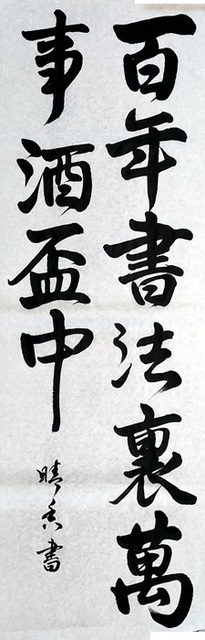 百年書法裏萬
事酒盃中
晴香書